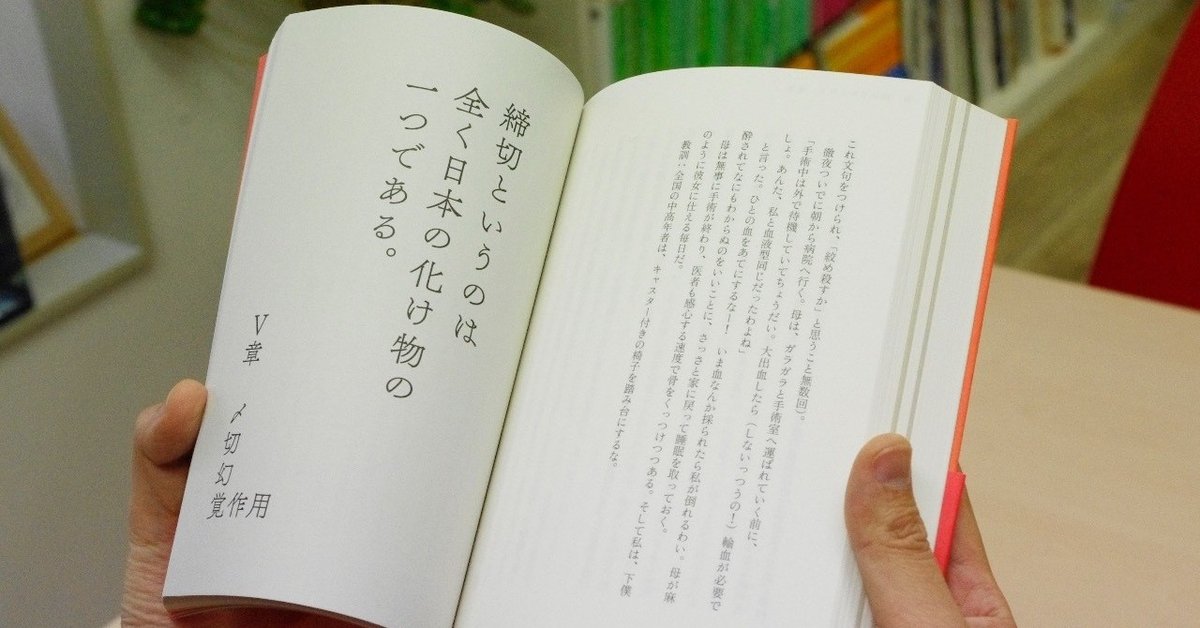 これ文句をつけられ、「絞め殺すか」と思うこと無数回)。
徹夜ついでに朝から病院へ行く。母は、ガラガラと手術室へ運ばれていく前に、
「手術中は外で待機していてちょうだい。大出血したら(しないっつうの!)輸血が必要で
しょ。あんた、私と血液型同じだったわよね」
と言った。ひとの血をあてにするなー! いま血なんか採られたら私が倒れるわい。母が麻
酔されてなにもわからぬのをいいことに、さっさと家に戻って睡眠を取っておく。
母は無事に手術が終わり、医者も感心する速度で骨をくっつけつつある。そして私は、下僕
のように彼女に仕える毎日だ。
教訓:全国の中高年者は、キャスター付きの椅子を踏み台にするな。
締切というのは
全く日本の化け物の
一つである。
Ⅴ章 〆切幻覚作用